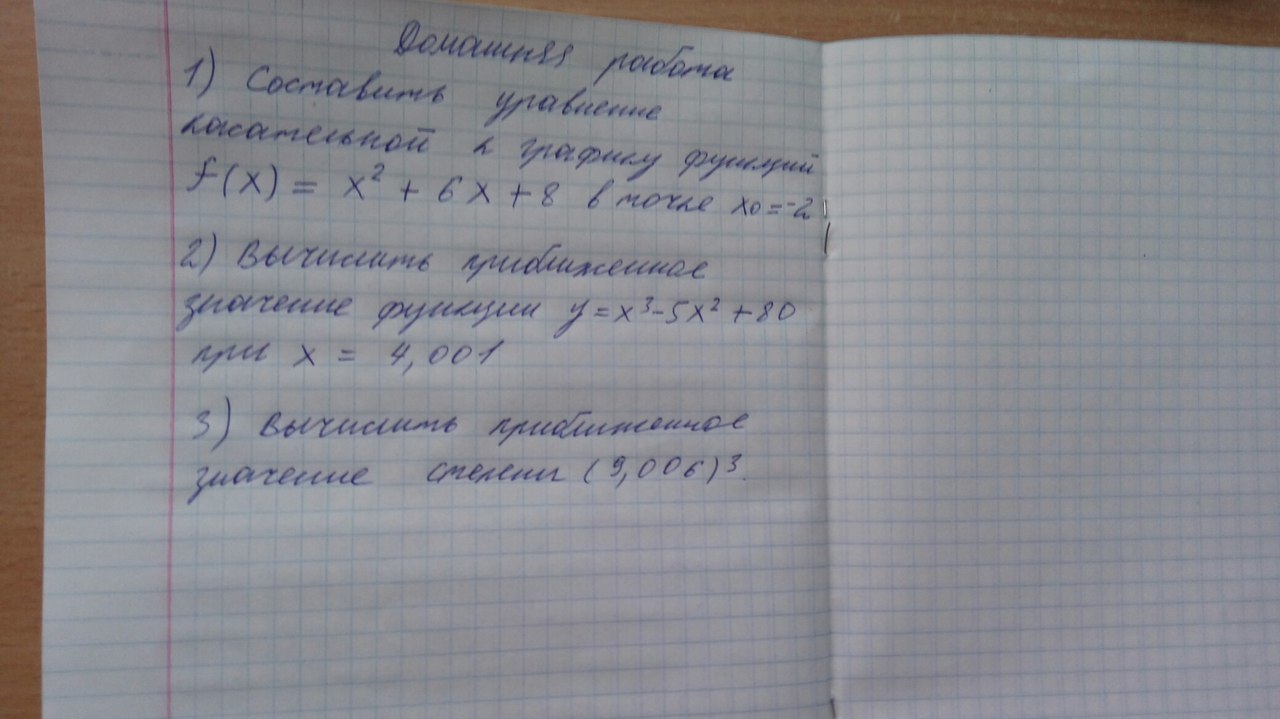 Домашняя работа
1) Составить уравнение
касательной к графику функций
f(x) = x² + 6x + 8 в точке x0=-2
2) Вычислить приближенное
значение функции y=x³-5x²+80
при x = 4,001
3) Вычислить приближенное
значение степени (9,006)³.